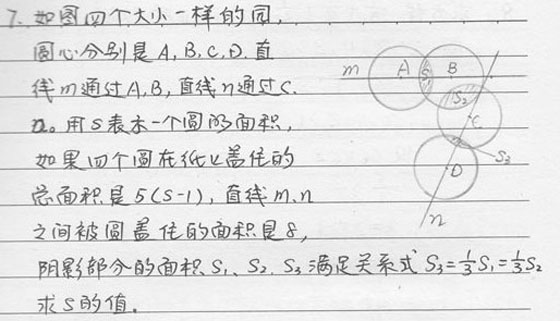 7. 如图四个大小一样的园,
圆心分别是A,B,C,D.直
线m通过A,B,直线n通过C.
D。用S表示一个圆的面积,
如果四个圆在纸上盖住的
总面积是5(S-1),直线m,n
之间被圆盖住的面积是8,
阴影部分的面积S₁、S₂、S₃满足关系式S₃=1/3S₁=1/3S₂
求S的值.
m A S₁ B
S₂
C
S₃
D
n